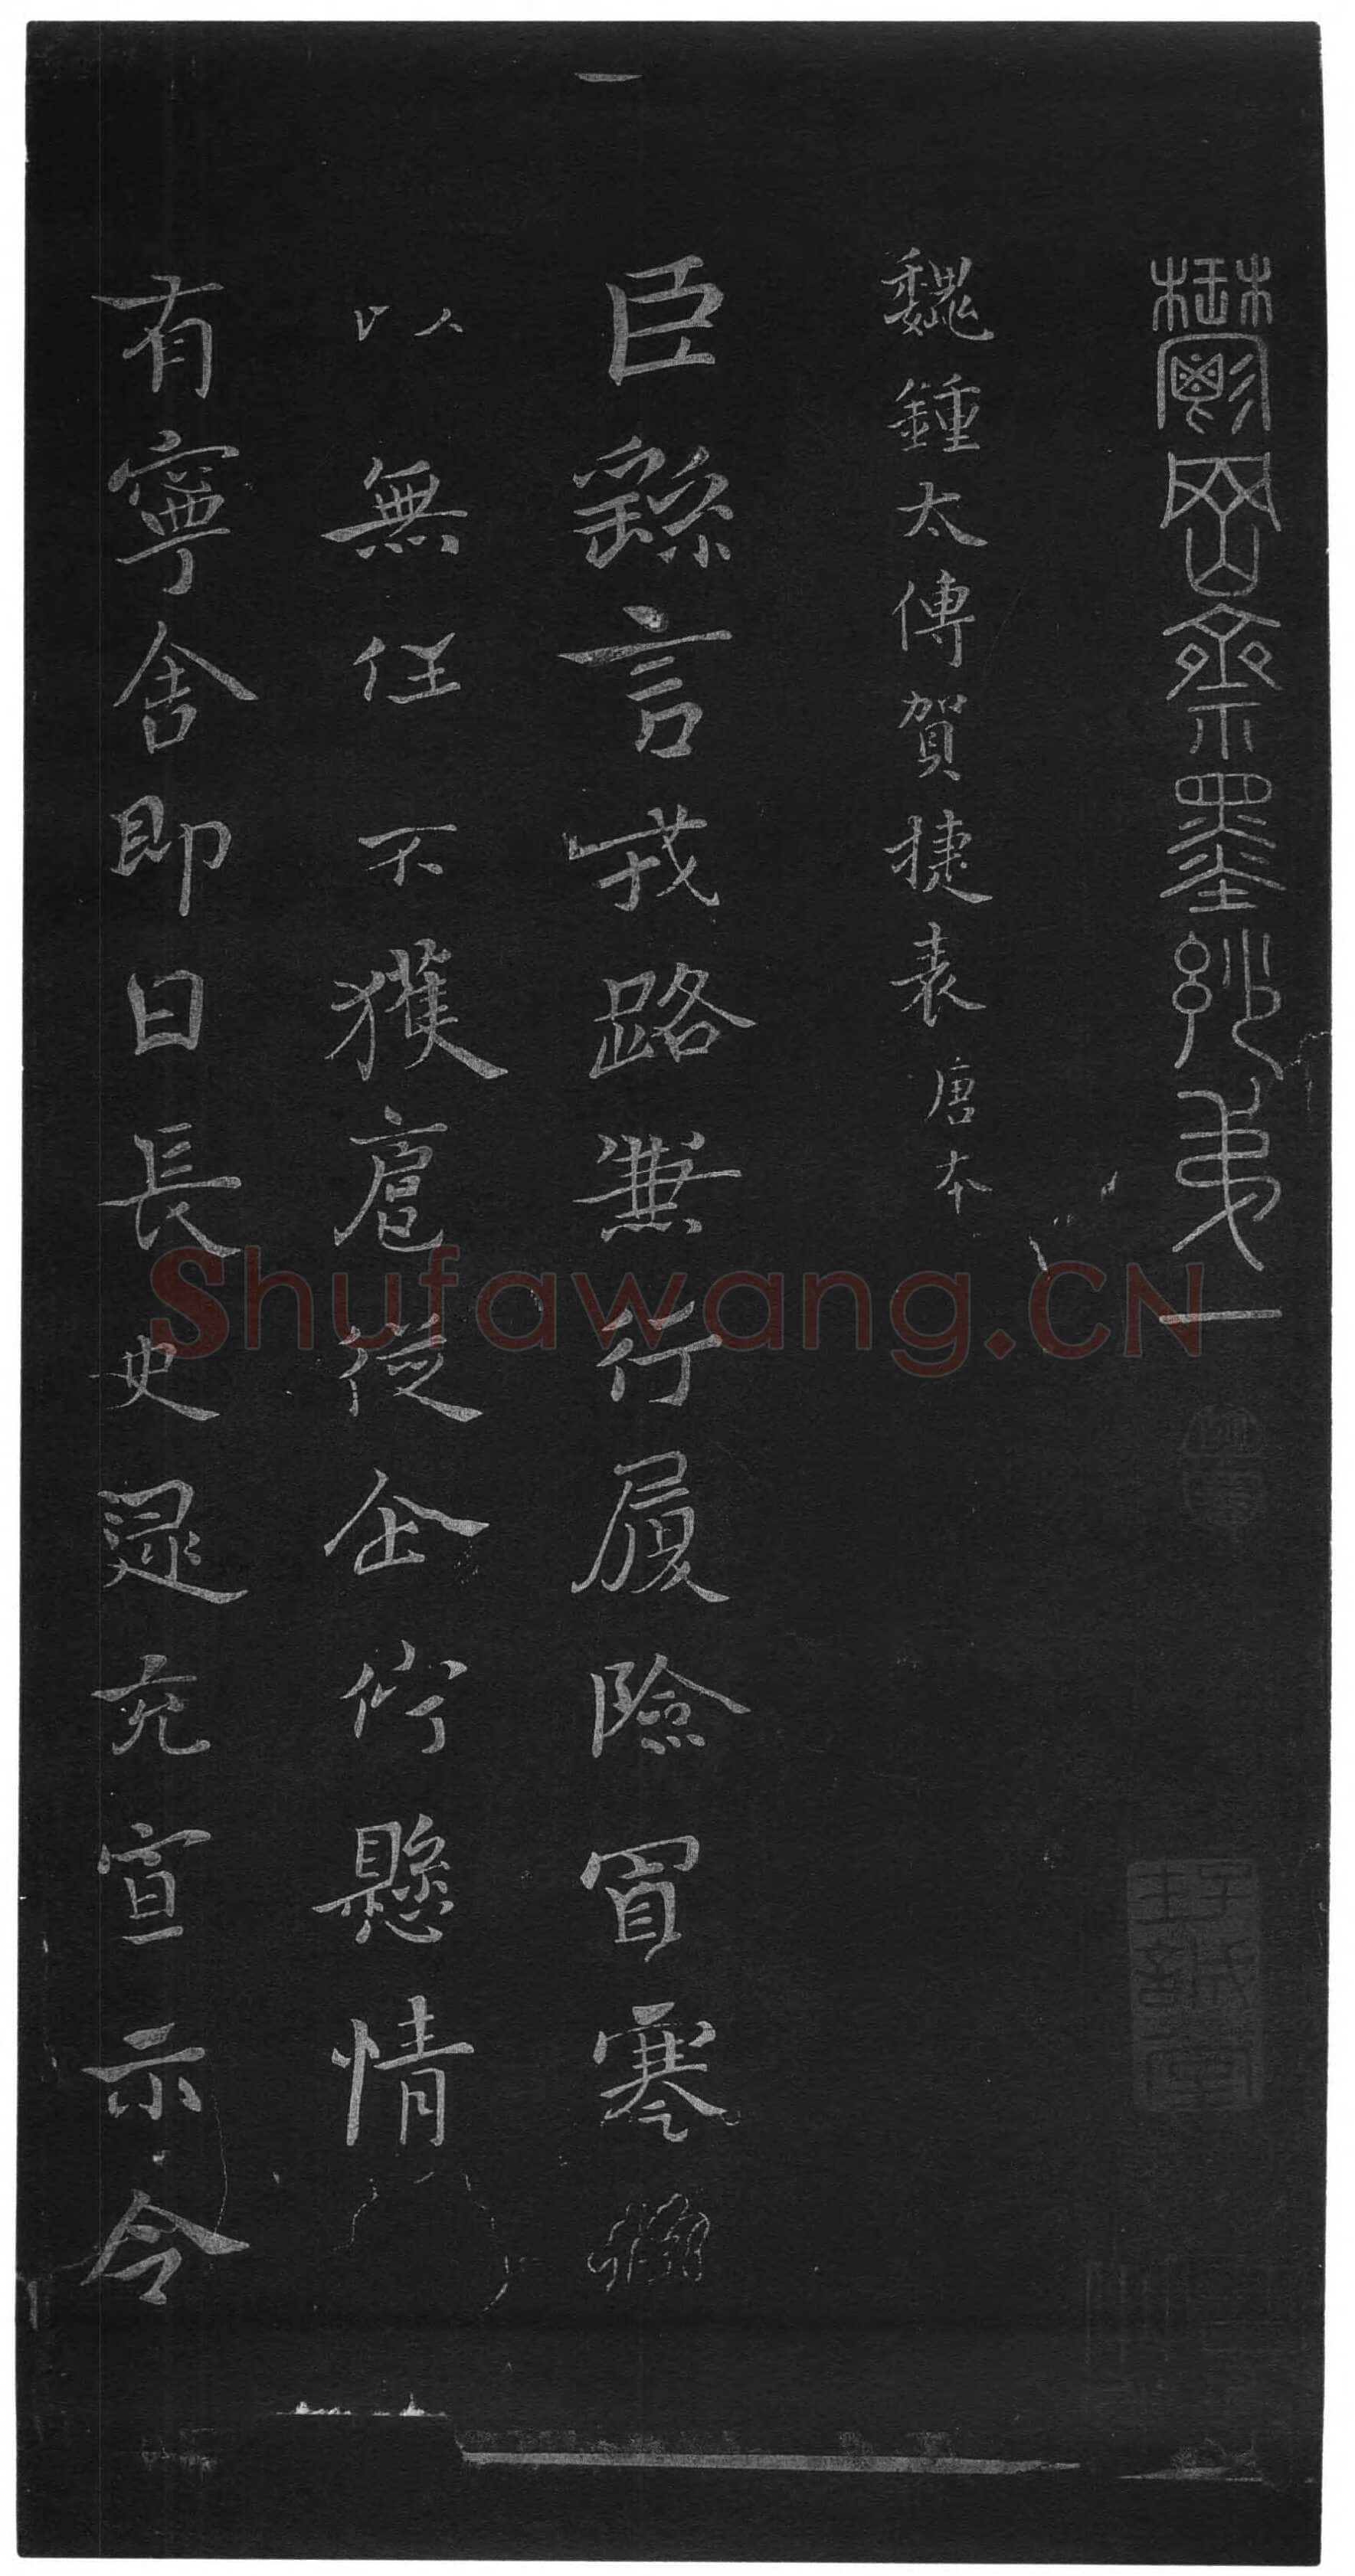 鬱岡齋墨玅弟一
魏鍾太傅賀捷表 唐本
臣繇言戎路兼行履險冒寒
以無任不獲扈從企佇懸情
有寧舍即日長史逯充宣示令
一
Shufawang.CN